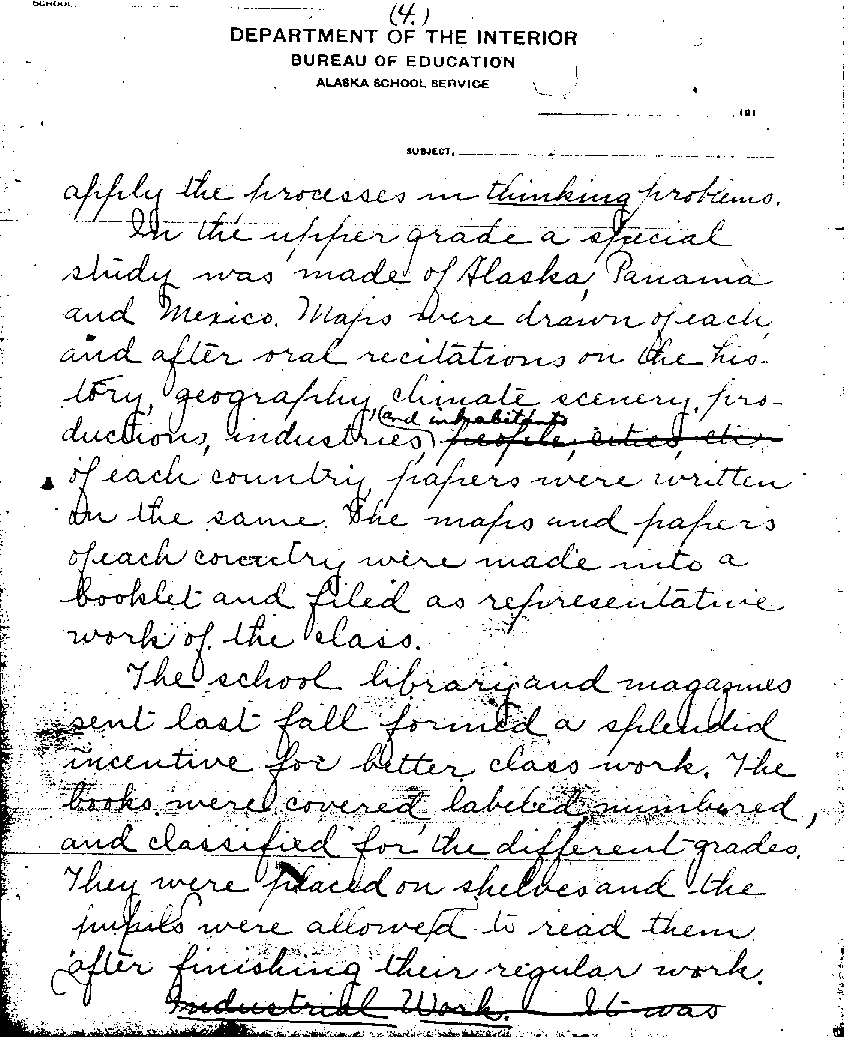 SCHOOL
(4.)
DEPARTMENT OF THE INTERIOR
BUREAU OF EDUCATION
ALASKA SCHOOL SERVICE
, 191
SUBJECT,
apply the processes in thinking problems.
In the upper grade a special
study was made of Alaska, Panama
and Mexico. Maps were drawn of each,
and after oral recitations on the his-
tory, geography, climate scenery, pro-
(and inhabitants
ductions, industries,) people, cities, etc.
of each country, papers were written
on the same. The maps and papers
of each country were made into a
booklet and filed as representative
work of the class.
The school library and magazines
sent last fall formed a splendid
incentive for better class work. The
books were covered, labeled, numbered,
and classified for the different grades.
They were placed on shelves and the
pupils were allowed to read them
after finishing their regular work.
Industrial Work. It was